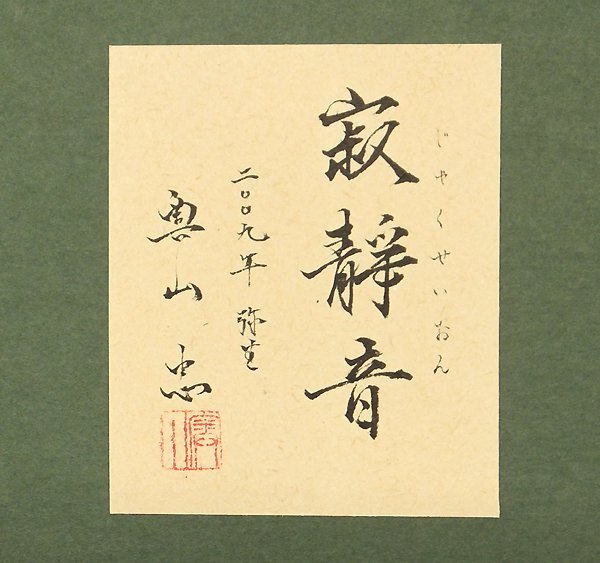 じゃくせいおん
寂靜音
二〇〇九年 弥生
奥山 忠